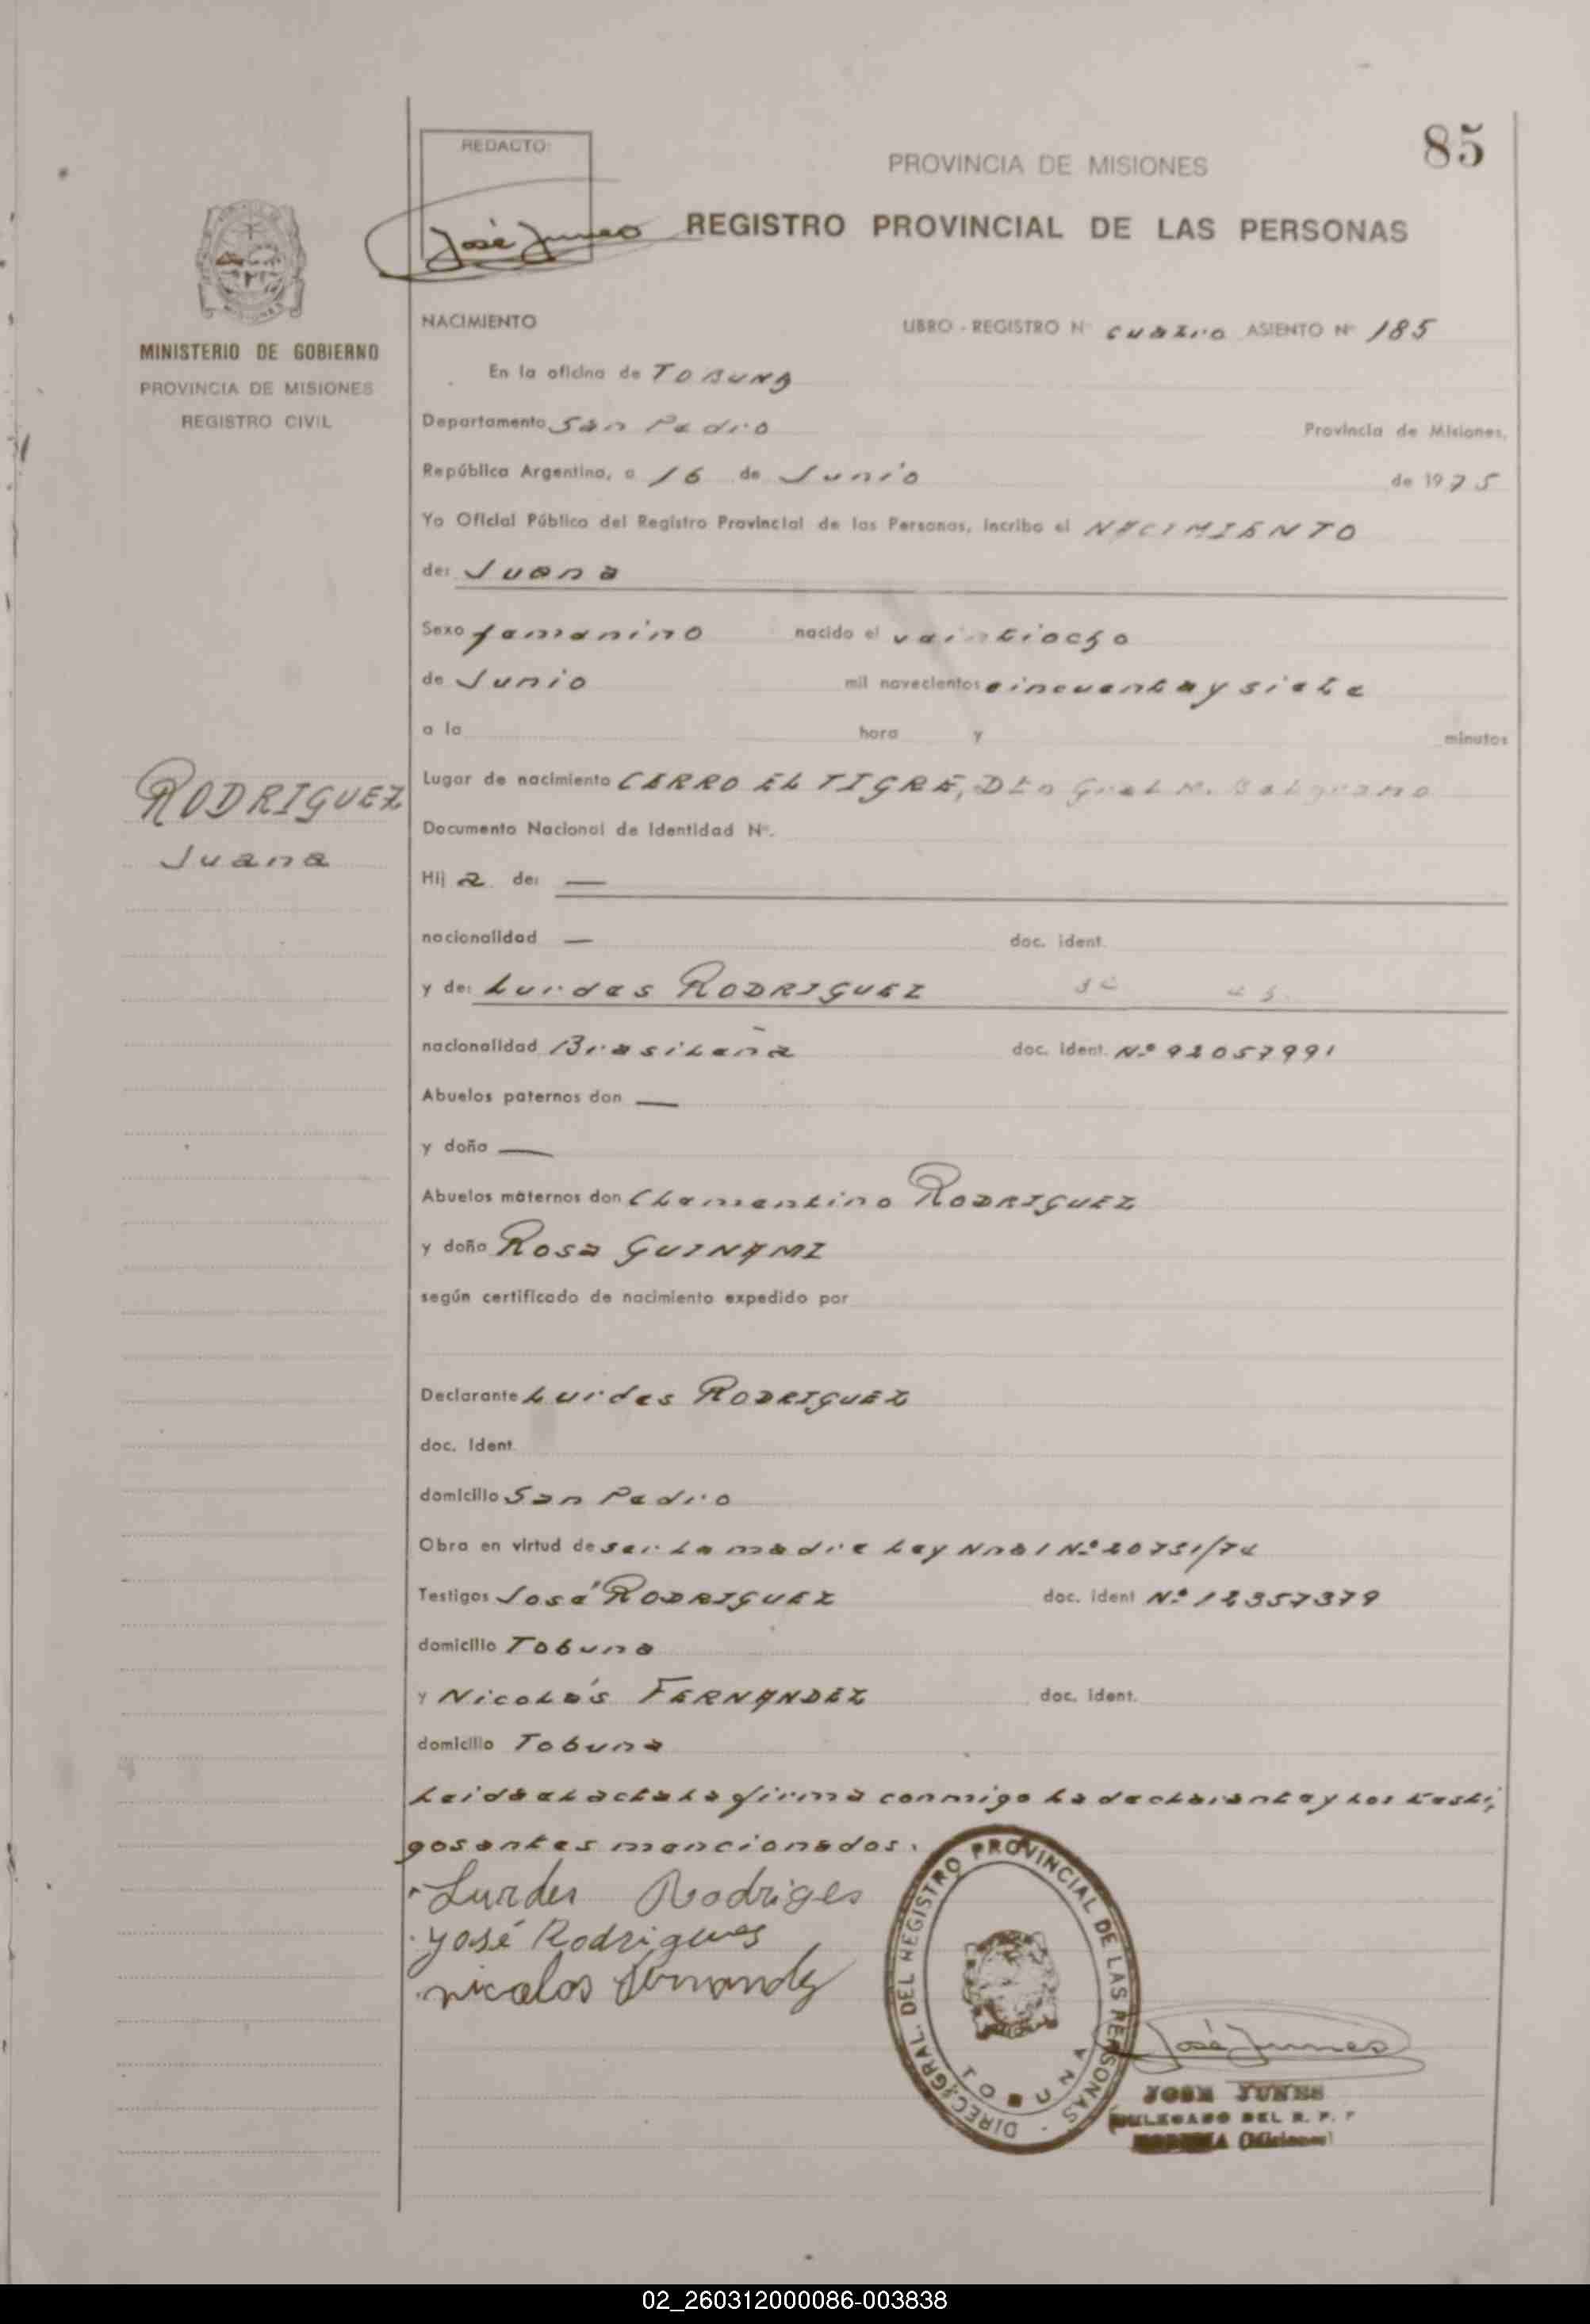 REDACTO:
José Junes
85
PROVINCIA DE MISIONES
REGISTRO PROVINCIAL DE LAS PERSONAS
MINISTERIO DE GOBIERNO
PROVINCIA DE MISIONES
REGISTRO CIVIL
NACIMIENTO
LIBRO - REGISTRO Nº cuatro ASIENTO Nº 185
En la oficina de TOBUNA
Departamento San Pedro Provincia de Misiones,
República Argentina, a 16 de Junio de 1975
Yo Oficial Público del Registro Provincial de las Personas, incribo el NACIMIENTO
de: Juana
Sexo femenino nacido el veintiocho
de Junio mil novecientos cincuenta y siete
a la hora y minutos
Lugar de nacimiento CERRO EL TIGRE, Dto Gral M. Belgrano
RODRIGUEZ
Juana
Documento Nacional de Identidad Nº.
Hij a de: —
nacionalidad — doc. ident.
y de: Lurdes RODRIGUEZ
nacionalidad Brasileña doc. ident. Nº 92057991
Abuelos paternos don —
y doña —
Abuelos maternos don Clementino RODRIGUEZ
y doña Rosa GUINAMI
según certificado de nacimiento expedido por
Declarante Lurdes RODRIGUEZ
doc. Ident.
domicilio San Pedro
Obra en virtud de ser la madre Ley Nnal Nº 20751/74
Testigos José RODRIGUEZ doc. ident Nº 12357379
domicilio Tobuna
y Nicolás FERNANDEZ doc. ident.
domicilio Tobuna
Leida el acta la firma conmigo la declarante y los testi,
gos antes mencionados.
Lurdes Rodriges
José Rodrigues
nicolas
DIREC. GRAL. DEL REGISTRO PROVINCIAL DE LAS PERSONAS
TOBUNA
José Junes
JOSE JUNES
DELEGADO DEL R. P. P
(Misiones)
02_260312000086-003838